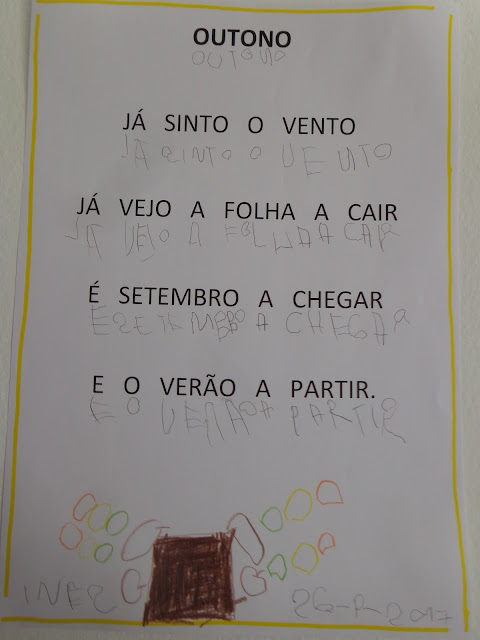 OUTONO
OUTONO
JÁ SINTO O VENTO
JA SINTO O VENTO
JÁ VEJO A FOLHA A CAIR
JA VEJO A FOLHA A CAIR
É SETEMBRO A CHEGAR
E SETEMBRO A CHEGAR
E O VERÃO A PARTIR.
E O VERÃO A PARTIR
INES 2017